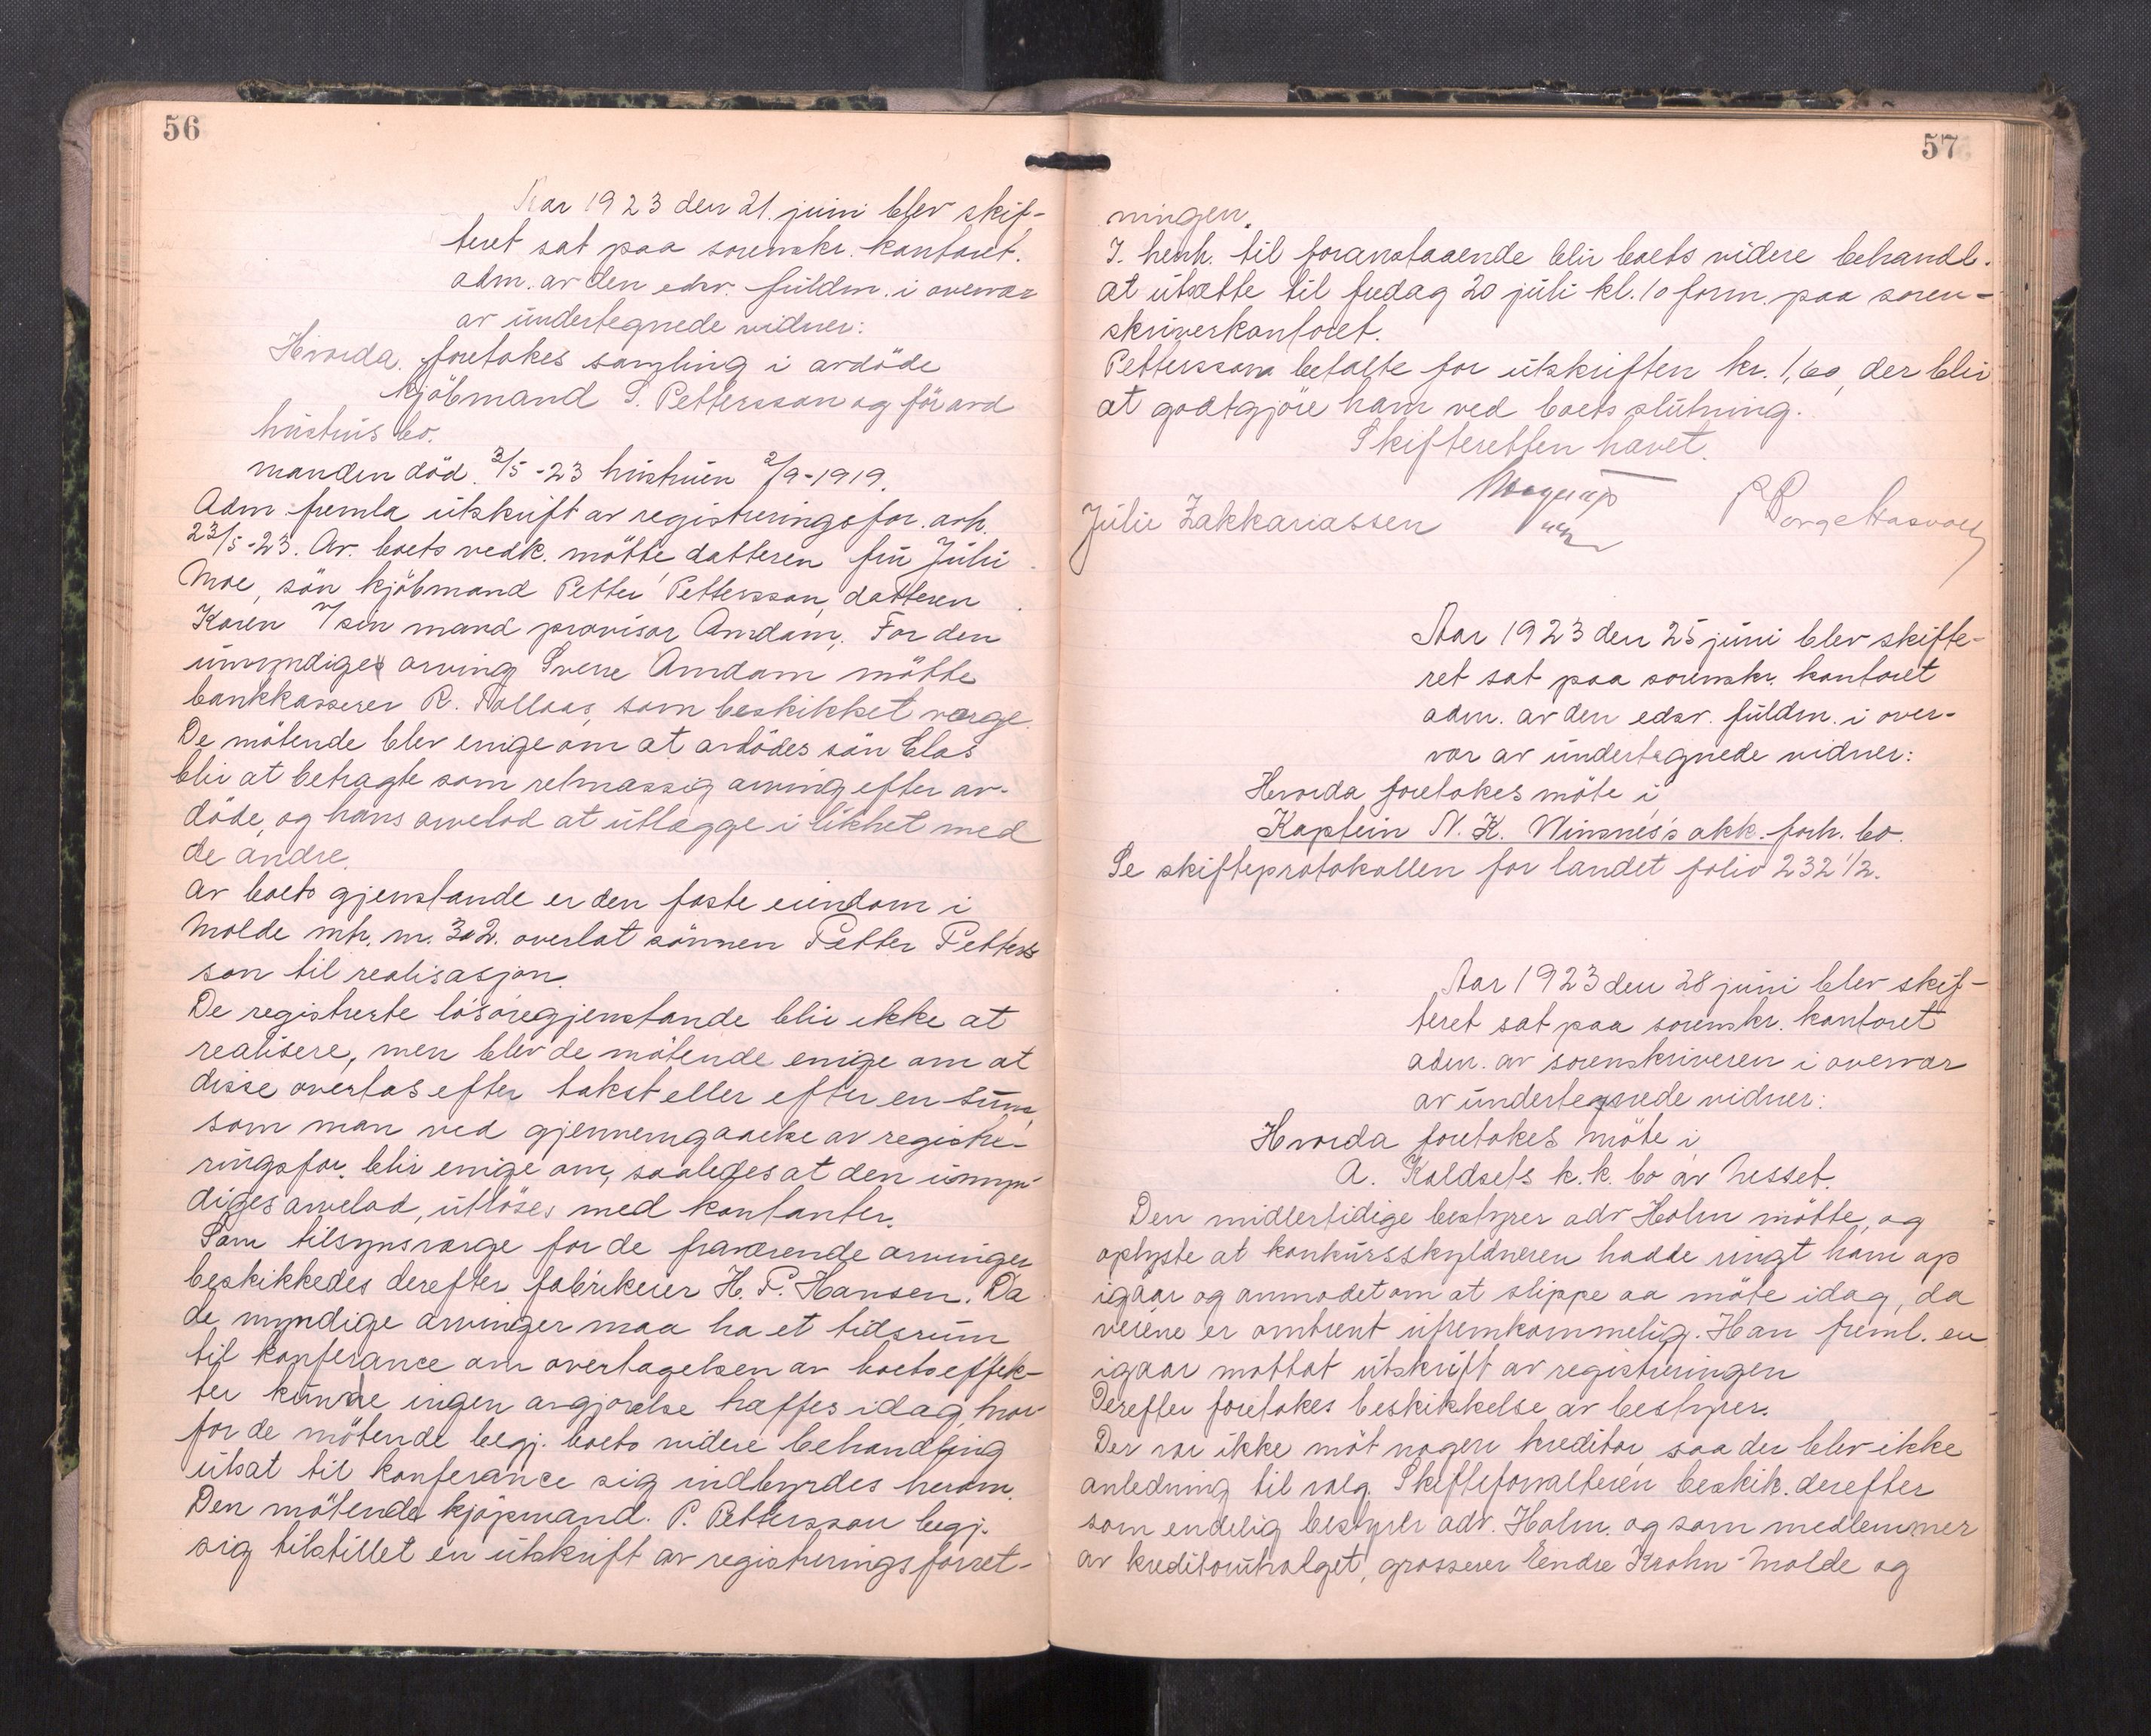 56
Aar 1923 den 21. juni blev skif-
teret sat paa sorenskr. kontoret.
adm. av den edsv. fuldm. i overvær
av undertegnede vidner:
Hvorda foretokes samling i avdöde
kjöbmand S. Pettersson og föravd
hustrus bo.
manden död 3/5-23 hustruen 2/9-1919.
Adm fremla utskrift av registreringsfor. avh.
23/5-23. Av boets vedk. mötte datteren fru Juli
Moe, sön kjöbmand Petter Pettersson, datteren
Karen v/ sin mand provisor Amdam. For den
umyndiges arving Sverre Amdam mötte
bankkasserer R. Tollaas som beskikket verge.
De mötende blev enige om at avdödes sön Elas
blir at betragte som retmæssig arving efter av-
döde, og hans arvelod at utlægge i likhet med
de andre.
Av boets gjenstande er den faste eiendom i
Molde mtr. nr. 302. overlat sönnen Petter Petters
son til realisasjon.
De registrerte lösöregjenstande blir ikke at
realisere, men blev de mötende enige om at
disse overtas efter takst eller efter en sum,
som man ved gjennemgaaelse av registre-
ringsfor. blir enige om, saaledes at den umyn-
diges arvelod, utlöses med kontanter.
Som tilsynsværge for de fraværende arvinger
beskikkedes derefter fabrikeier H. P. Hansen. Da
de myndige arvinger maa ha et tidsrum
til konferance om overtagelsen av boets effek-
ter kunde ingen avgjorelse træffes idag, hvor
for de mötende begj. boets videre behandling
utsat til konferance sig indbyrdes herom.
Den mötende kjöpmand P. Pettersson begj.
sig tilstillet en utskrift av registreringsforret-
57
ningen.
I. henh. til foranstaaende blir boets videre behandl.
at utsætte til fredag 20 juli kl. 10 form. paa soren-
skriverkontoret.
Pettersson betalte for utskriften kr. 1,60, der blir
at godtgjöre ham ved boets slutning.
Skifteretten hævet.
Julie Zakkariassen
Aar 1923 den 25 juni blev skifte-
ret sat paa sorenskr. kontoret
adm. av den edsv. fuldm. i over-
vær av undertegnede vidner:
Hvorda foretokes möte i
Kaptein N. K. Winsnes's akk. forh. bo.
Se skifteprotokollen for landet folio 232 1/2.
Aar 1923 den 28 juni blev skif-
teret sat paa sorenskr. kontoret
adm. av sorenskriveren i overvær
av undertegnede vidner:
Hvorda foretokes möte i
A. Koldsets k. k. bo av Nesset.
Den midlertidige bestyrer adv Holm mötte, og
oplyste at konkursskyldneren hadde ringt ham op
igaar og anmodet om at slippe aa möte idag, da
veiene er omtrent ufremkommelig. Han freml. en
igaar mottat utskrift av registreringen
Derefter foretokes beskikkelse av bestyrer.
Der var ikke möt nogen kreditor saa der blev ikke
anledning til valg. Skifteforvalteren beskik. derefter
som endelig bestyrer adv. Holm. og som medlemmer
av kreditorutvalget, grosserer Eendre Krohn - Molde og